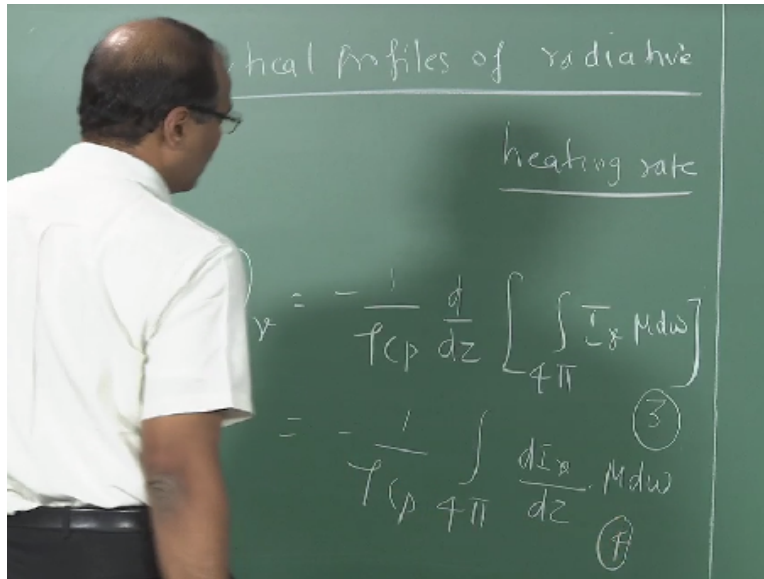 tical profiles of radiative
heating rate
)γ = - 1/ρCp d/dz [ ∫4π Iγ μdω ]
③
= - 1/ρCp ∫4π dIγ/dz . μdω
④